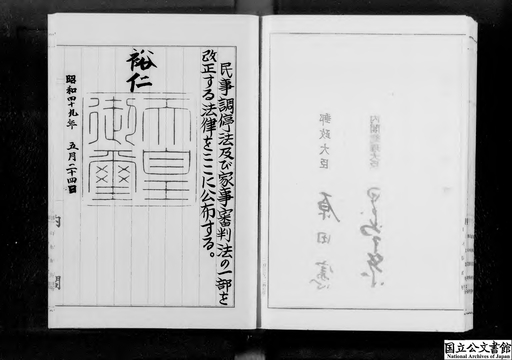 民事調停法及び家事審判法の一部を
改正する法律をここに公布する。
裕仁
天皇
御璽
昭和四十九年 五月二十四日
内 閣
郵政大臣
原田憲
国立公文書館
National Archives of Japan